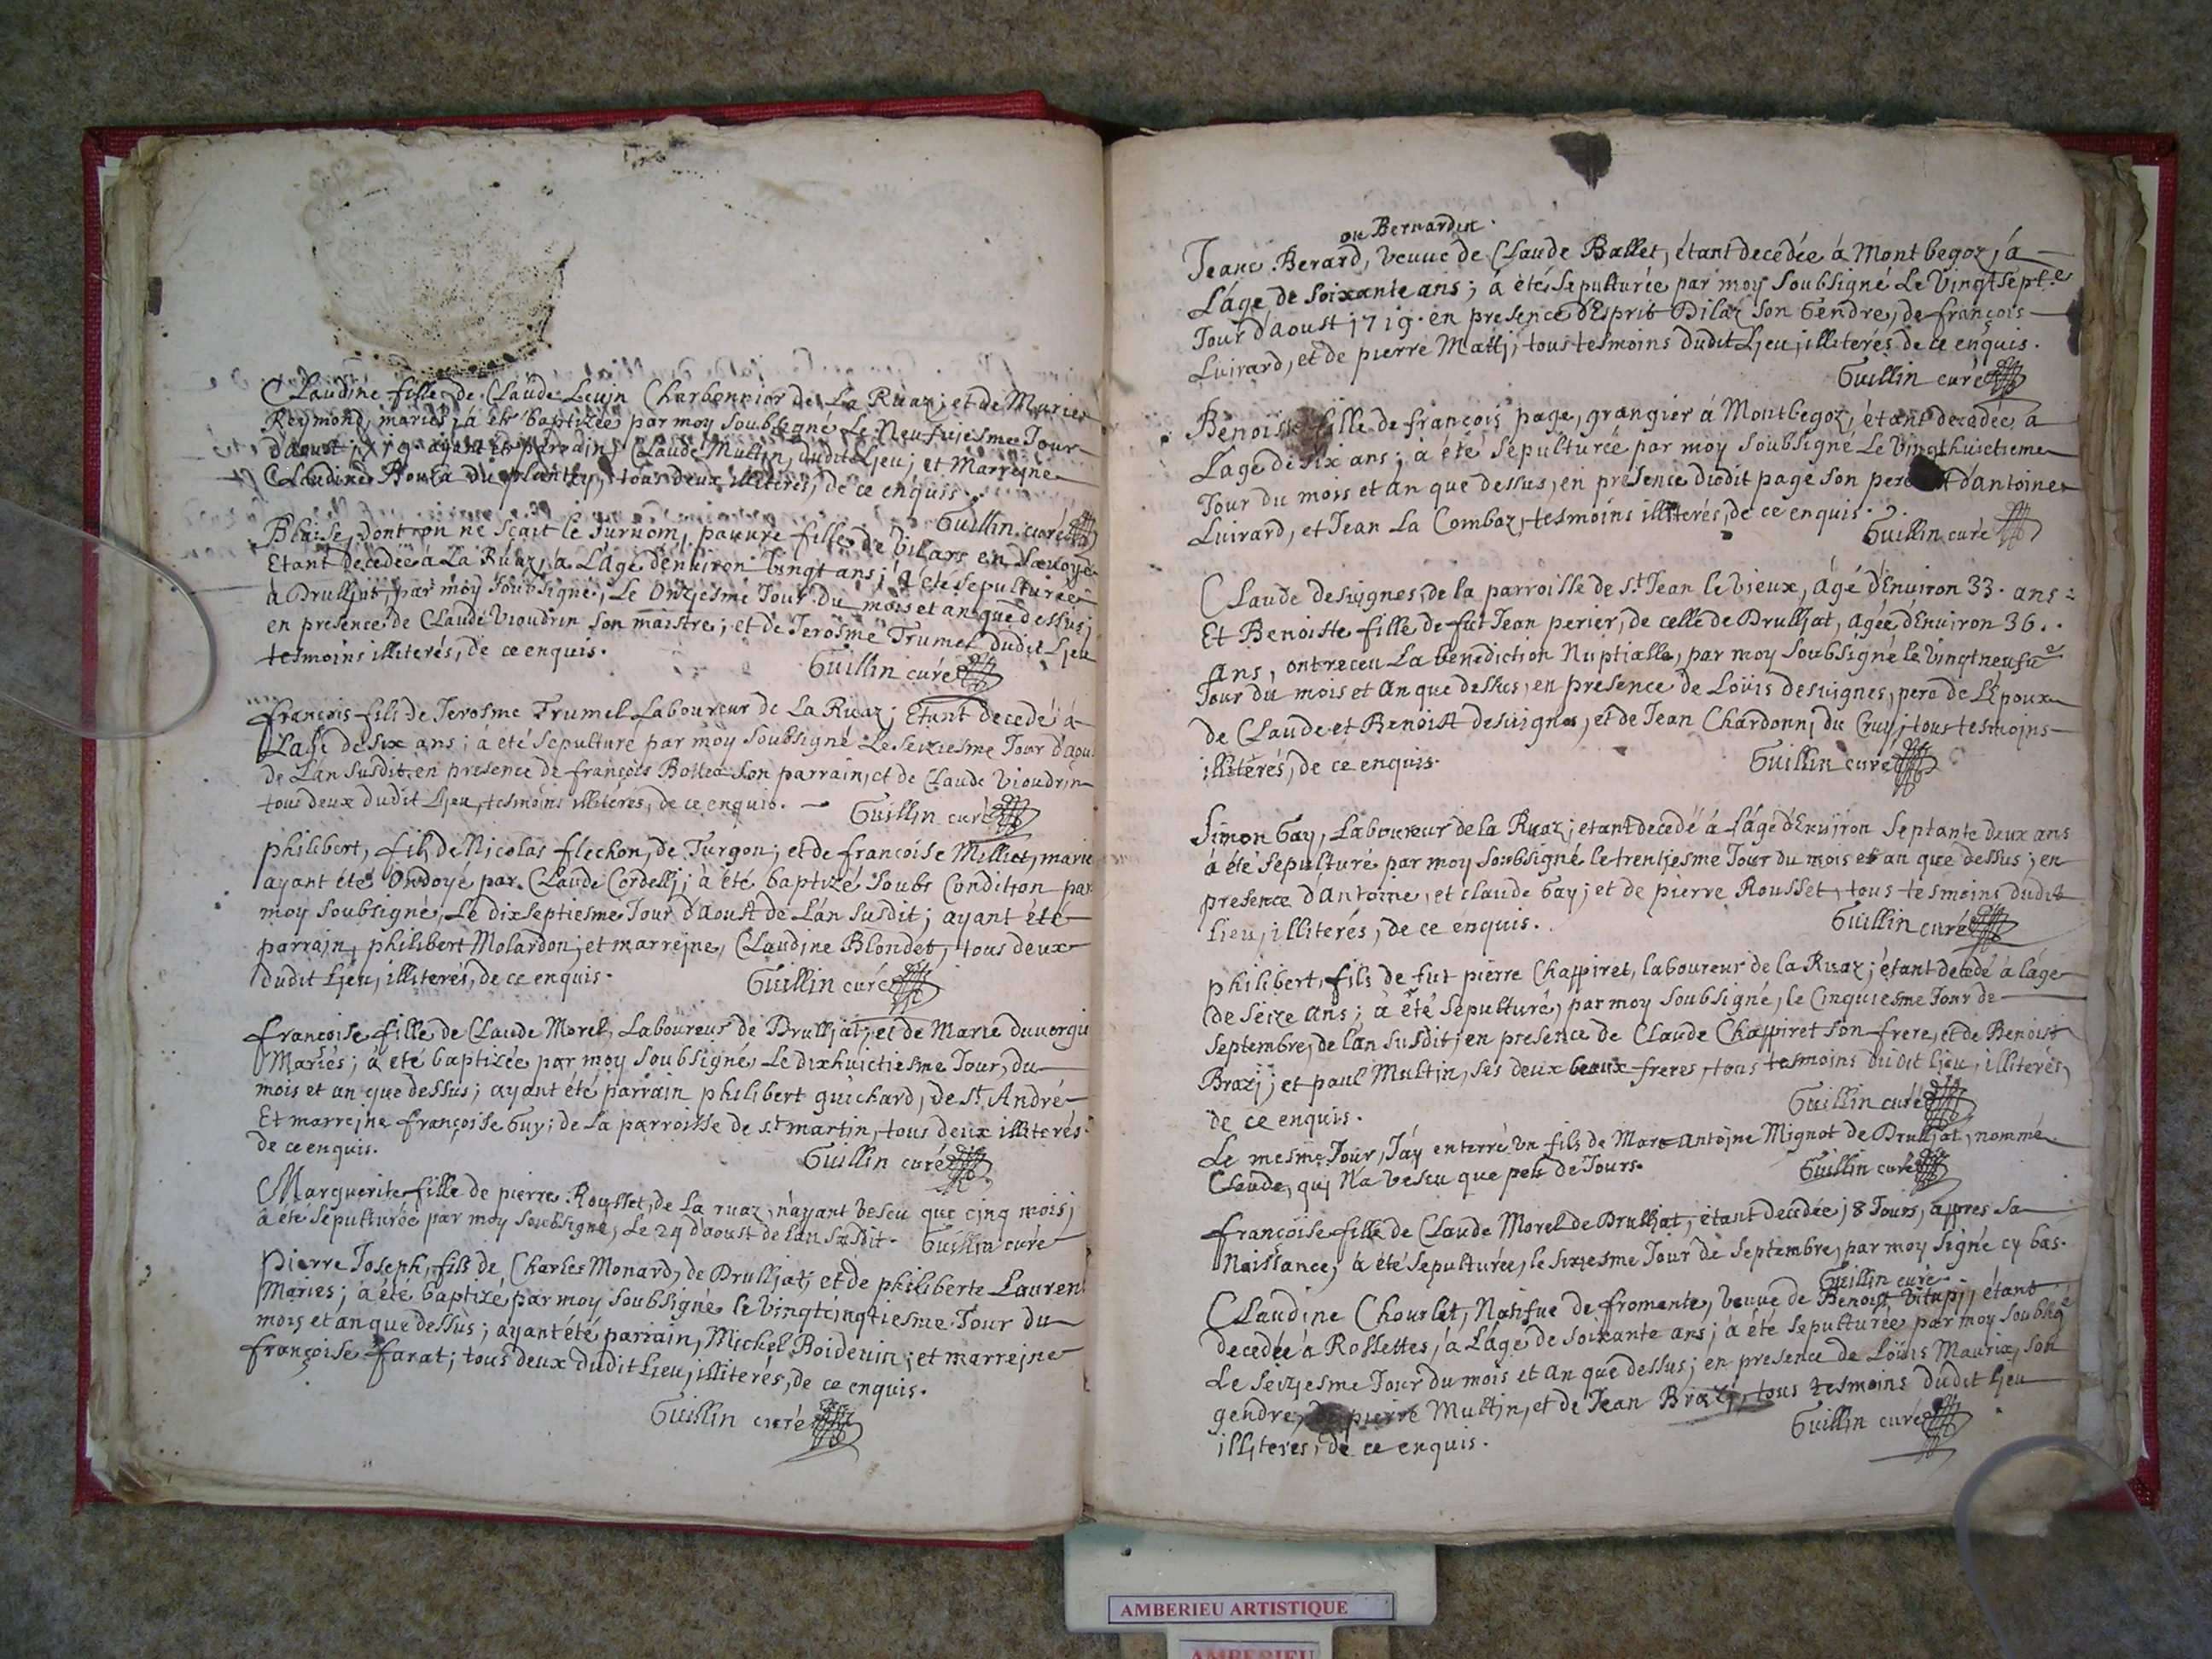 Claudine fille de Claude Levin Charbonnier de La Ruaz; et de Marie
Reymond, mariés; à été baptizée par moy soubsigné Le Neufujesme Jour
d'aoust 1719 ayant été parrain, Claude Multin, dudit Ljeu; et Marrejne
Claudine du plantey, tous deux illiterés, de ce enquis.
Guillin curé
Blaise, dont on ne sçait le surnom, pauure fille de Vilars en
Etant decedée à La Ruaz, à L'áge d'enuiron Vingt ans; à été sepulturée
à Drulljat, par moy soubsigné, Le Onzjesme Jour du mois et an que dessus;
en presence de Claude Vioudrin son maistre; et de Jerosme Trumel dudit Ljeu
tesmoins illiterés, de ce enquis.
Guillin curé
françois fils de Jerosme Trumel Laboureur de La Ruaz; Etant decedé à
L'age de six ans; à été sepulturé par moy soubsigné Le seiziesme Jour d'aou
de L'an susdit en presence de françois son parrain, et de Claude Vioudrin
tous deux dudit Ljeu, tesmoins illiterés, de ce enquis.
Guillin curé
philibert, fils de Nicolas flechon, de Turgon; et de francoise Milliet, marie
ayant été Ondoyé par Claude Cordellj; à été baptizé soubs Condition par
moy soubsigné, Le dixseptiesme Jour d'Aoust de L'án susdit; ayant été
parrajn, philibert Molardon; et marrejne, Claudine Blondet, tous deux
dudit Ljeu, illiterés, de ce enquis.
Guillin curé
francoise fille de Claude Morel, Laboureur de Drulljat; et de Marie duuergu
Mariés; à été baptizée par moy soubsigné Le dixhuictiesme Jour, du
mois et an que dessus; ayant été parrain philibert guichard, de St André
Et marrejne françoise Guy; de La parroisse de st martin, tous deux illiterés
de ce enquis.
Guillin curé
Marguerite fille de pierre Rousset, de La ruaz; n'ayant vescu que cinq mois;
à été sepulturée par moy soubsigné, Le 24 d'aoust de L'an susdit. Guillin curé
Pierre Joseph, fils de Charles Monard, de Drulljat; et de philiberte Lauren
Mariés; à été baptizé par moy soubsigné le Vingtcinqtiesme Jour du
mois et an que dessus; ayant été parrain, Michel Boideuin; et marrejne
françoise farat; tous deux dudit Ljeu, illiterés, de ce enquis.
Guillin curé
ou Bernardin.
Jeane Berard, Veuue de Claude Ballet, étant decedée à Montbegoz, à
L'áge de soixante ans; à été sepulturée par moy soubsigné Le Vingtsept.e
Jour d'aoust 1719. en presence d'Esprit Dilaz son Gendre, de françois
Luirard, et de pierre Mattj; tous tesmoins dudit Ljeu, illiterés, de ce enquis.
Guillin curé
Benoiste fille de françois page, grangier à Montbegoz, étant decedée, à
L'age de six ans; à été sepulturée par moy soubsigné Le Vingthuictieme
Jour du mois et an que dessus, en presence dudit page son pere et d'antoine
Luirard, et Jean La Combaz, tesmoins illiterés, de ce enquis.
Guillin curé
Claude desuignes, de la parroisse de st Jean le Vieux, Ágé d'Enuiron 33. ans:
Et Benoiste fille de fut Jean perier, de celle de Drulljat, Ágée d'Enuiron 36.
Ans, ont receu La benediction Nuptialle, par moy soubsigné le Vingtneufue
Jour du mois et an que dessus, en présence de Loüis desuignes, pere de L'époux
de Claude et Benoist desuignes, et de Jean Chardonnj du Cruy; tous tesmojns
illiterés, de ce enquis.
Guillin curé
Simon Gay, Laboureur de la Ruaz; etant decedé à L'áge d'Enuiron septante deux ans
à été sepulturé par moy soubsigné le trentjesme Jour du mois et an que dessus; en
presence d'Antoine, et claude Gay; et de pierre Rousset, tous tesmoins dudit
Lieu, illiterés, de ce enquis.
Guillin curé
philibert, fils de fut pierre Chappiret, laboureur de la Ruaz; étant decedé à láge
de seize ans; à été sepulturé, par moy soubsigné, le Cinquiesme Jour de
septembre, de l'an susdit; en presence de Claude Chappiret son frere, et de Benoist
Brazj; et paul Multin, ses deux beaux-freres, tous tesmoins dudit ljeu, illiterés,
de ce enquis.
Guillin curé
Le mesme Jour, J'ay enterré Un fils de Marc Antojne Mignot de Drulljat, nommé
Claude, quj N'a vescu que peu de Jours.
Guillin curé
françoise fille de Claude Morel de Drulljat, étant decedée 18 Jours, appres sa
Naissance, à été sepulturée, le sixiesme Jour de septembre, par moy signé cy bas.
Guillin curé
Claudine Chourlet, Natifue de fromente, veuue de Benoist Vitupj; étant
decedée à Rossettes, à L'áge de soixante ans; à été sepulturée par moy soubsigé
Le seizjesme Jour du mois et an que dessus; en presence de Loüis Maurix, son
gendre, de pierre Multjn, et de Jean Brazj, tous tesmoins dudit Ljeu
illiteres, de ce enquis.
Guillin curé
AMBERIEU ARTISTIQUE
AMBERIEU